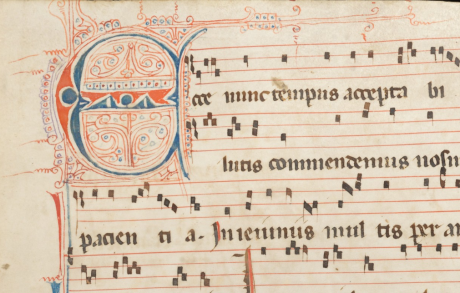 Ecce nunc tempus accepta bi
lutis commendemus nosm
pacien ti a. In ieiuniis mul tis per ar